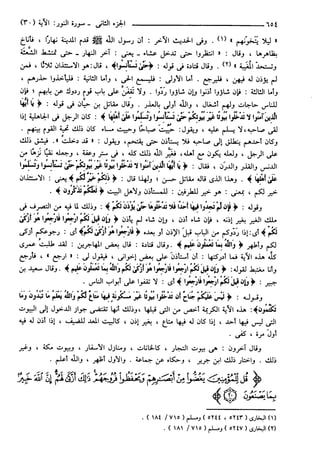 ٦٥٤ الجزء الثاني - سورة النور: الآية (٣٠)
« ليلا يتخونهم » (١) . وفي الحديث الآخر : أن رسول الله ﷺ قدم المدينة نهارًا ، فأناخ
بظاهرها ، وقال : « انتظروا حتى تدخل عشاء - يعني : آخر النهار - حتى تمتشط الشعثة
وتستحد المُغيبة » (٢) . وقال قتادة في قوله : ﴿ حَتَّى تَسْتَأْنِسُوا ﴾ ، قال : هو الاستئذان ثلاثًا ، فمن
لم يؤذن له فيهن ، فليرجع . أما الأولى : فليسمع الحي ، وأما الثانية : فليأخذوا حذرهم ،
وأما الثالثة : فإن شاؤوا أذنوا وإن شاؤوا ردُّوا . ولا تقفن على باب قوم ردوك عن بابهم ؛ فإن
للناس حاجات ولهم أشغال ، والله أولى بالعذر . وقال مقاتل بن حيان في قوله : ﴿ يَا أَيُّهَا
الَّذِينَ آمَنُوا لَا تَدْخُلُوا بُيُوتًا غَيْرَ بُيُوتِكُمْ حَتَّى تَسْتَأْنِسُوا وَتُسَلِّمُوا عَلَى أَهْلِهَا ﴾ : كان الرجل في الجاهلية إذا
لقي صاحبه لا يسلم عليه ، ويقول : حييت صباحًا وحييت مساء ، كان ذلك تحية القوم بينهم .
وكان أحدهم ينطلق إلى صاحبه فلا يستأذن حتى يقتحم ، ويقول : « قد دخلت » . فيشق ذلك
على الرجل ، ولعله يكون مع أهله ، فغيَّر الله ذلك كله ، في ستر وعفة ، وجعله نقيًّا نزهًا من
الدنس والقذر والدرن ، فقال : ﴿ يَا أَيُّهَا الَّذِينَ آمَنُوا لَا تَدْخُلُوا بُيُوتًا غَيْرَ بُيُوتِكُمْ حَتَّى تَسْتَأْنِسُوا وَتُسَلِّمُوا
عَلَى أَهْلِهَا ﴾ . وهذا الذي قاله مقاتل حسن ، ولهذا قال : ﴿ ذَلِكُمْ خَيْرٌ لَكُمْ ﴾ يعني : الاستئذان
خير لكم ، بمعنى : هو خير للطرفين : للمستأذن ولأهل البيت ﴿ لَعَلَّكُمْ تَذَكَّرُونَ ﴾ .
وقوله : ﴿ فَإِنْ لَمْ تَجِدُوا فِيهَا أَحَدًا فَلَا تَدْخُلُوهَا حَتَّى يُؤْذَنَ لَكُمْ ﴾ : وذلك لما فيه من التصرف في
ملك الغير بغير إذنه ، فإن شاء أذن ، وإن شاء لم يأذن ﴿ وَإِنْ قِيلَ لَكُمُ ارْجِعُوا فَارْجِعُوا هُوَ أَزْكَى
لَكُمْ ﴾ أي : إذا ردّوكم من الباب قبل الإذن أو بعده ﴿ فَارْجِعُوا هُوَ أَزْكَى لَكُمْ ﴾ أي : رجوعكم أزكى
لكم وأطهر ﴿ وَاللَّهُ بِمَا تَعْمَلُونَ عَلِيمٌ ﴾ . وقال قتادة : قال بعض المهاجرين : لقد طلبت عمري
كله هذه الآية فما أدركتها : أن أستأذن على بعض إخواني ، فيقول لي : « ارجع » ، فأرجع
وأنا مغتبط لقوله: ﴿ وَإِنْ قِيلَ لَكُمُ ارْجِعُوا فَارْجِعُوا هُوَ أَزْكَى لَكُمْ وَاللَّهُ بِمَا تَعْمَلُونَ عَلِيمٌ ﴾ . وقال سعيد بن
جبير : ﴿ وَإِنْ قِيلَ لَكُمُ ارْجِعُوا فَارْجِعُوا ﴾ أي : لا تقفوا على أبواب الناس .
وقوله : ﴿ لَيْسَ عَلَيْكُمْ جُنَاحٌ أَنْ تَدْخُلُوا بُيُوتًا غَيْرَ مَسْكُونَةٍ فِيهَا مَتَاعٌ لَكُمْ وَاللَّهُ يَعْلَمُ مَا تُبْدُونَ وَمَا
تَكْتُمُونَ ﴾ : هذه الآية الكريمة أخص من التي قبلها ، وذلك أنها تقتضي جواز الدخول إلى البيوت
التي ليس فيها أحد ، إذا كان له فيها متاع ، بغير إذن ، كالبيت المعد للضيف ، إذا أذن له فيه
أول مرة ، كفى .
وقال آخرون : هي بيوت التجار ، كالخانات ، ومنازل الأسفار ، وبيوت مكة ، وغير
ذلك . واختار ذلك ابن جرير ، وحكاه عن جماعة . والأول أظهر ، والله أعلم .
﴿ قُلْ لِلْمُؤْمِنِينَ يَغُضُّوا مِنْ أَبْصَارِهِمْ وَيَحْفَظُوا فُرُوجَهُمْ ذَلِكَ أَزْكَى لَهُمْ إِنَّ اللَّهَ خَبِيرٌ
بِمَا يَصْنَعُونَ ﴾
(١) البخاري (٥٢٤٣ ، ٥٢٤٤) ومسلم (٧١٥ / ١٨٤) .
(٢) البخاري (٥٢٤٧) ومسلم (٧١٥ / ١٨١) .